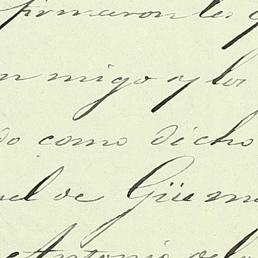 firmaron los
migo y los
do como dicho
el de Güe
Antonio de